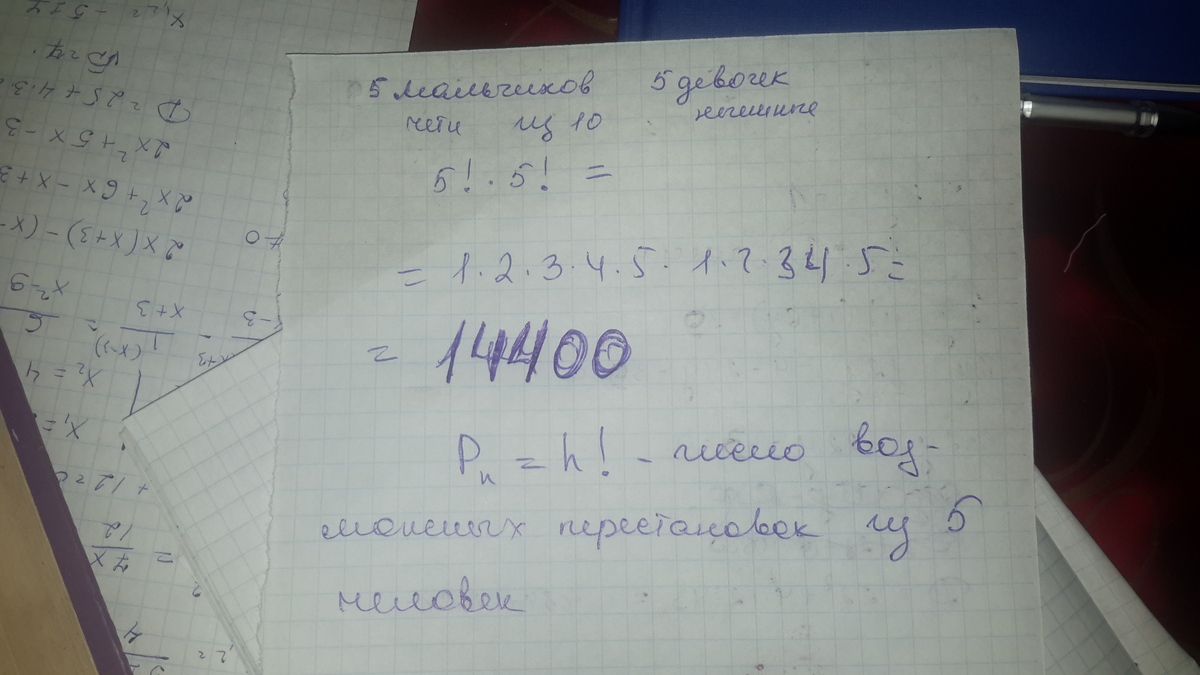 5 мальчиков 5 девочек
четн из 10 нечетные
5! · 5! =
= 1 · 2 · 3 · 4 · 5 · 1 · 2 · 3 4 · 5 =
= 14400
Pn = n! - число воз-
можных перестановок из 5
человек
√D = 7.
D = 25 + 4·3·
2x² + 5x - 3
2x² + 6x - x + 3
2x(x+3) - (x-
x² - 9
x₂ = 4
x₁ =
+ 12 =
= 7x
12